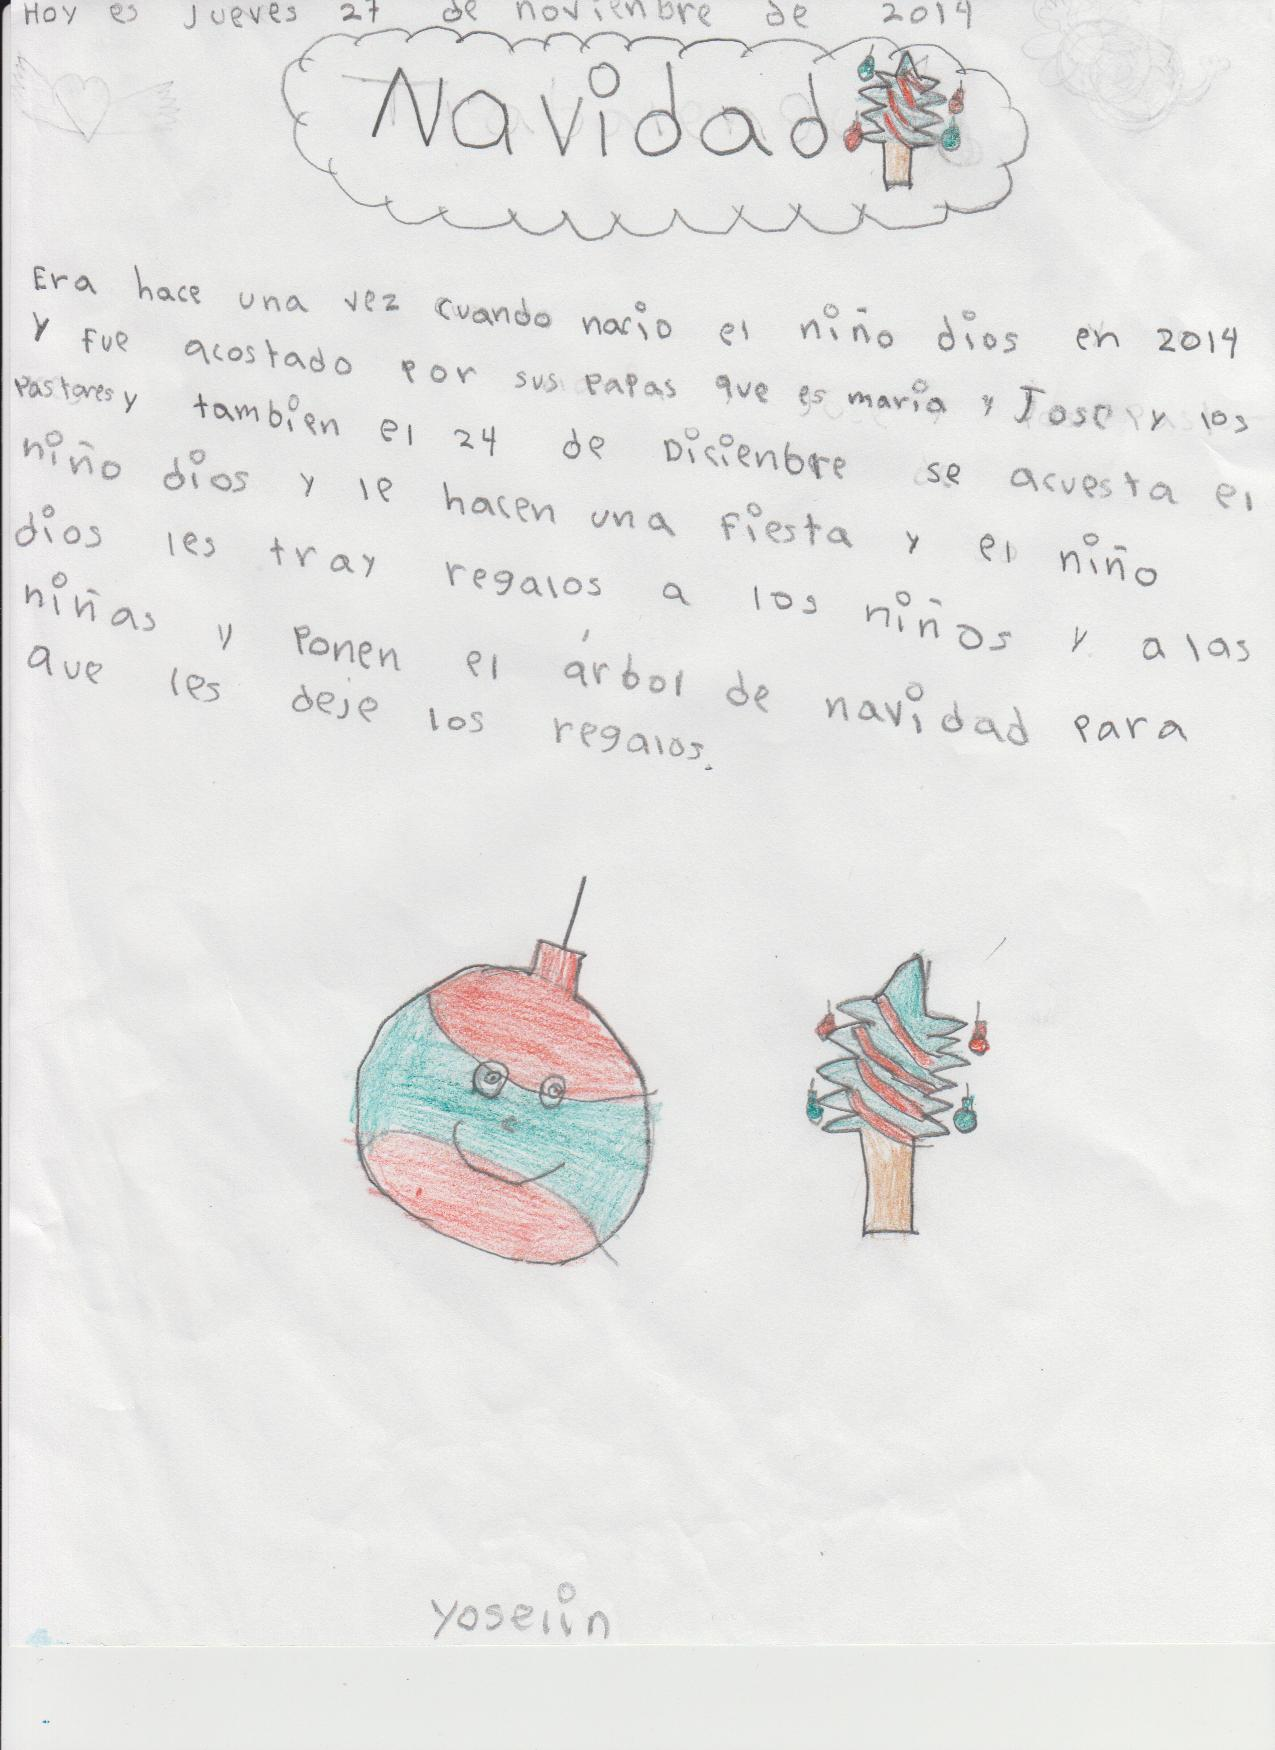 Hoy es jueves 27 de noviembre de 2014
Navidad
Era hace una vez cuando nacio el niño dios en 2014
y fue acostado por sus papas que es maria y Jose y los
Pastores y tambien el 24 de Diciembre se acuesta el
niño dios y le hacen una fiesta y el niño
dios les tray regalos a los niños y a las
niñas y ponen el árbol de navidad para
que les deje los regalos.
Yoselin